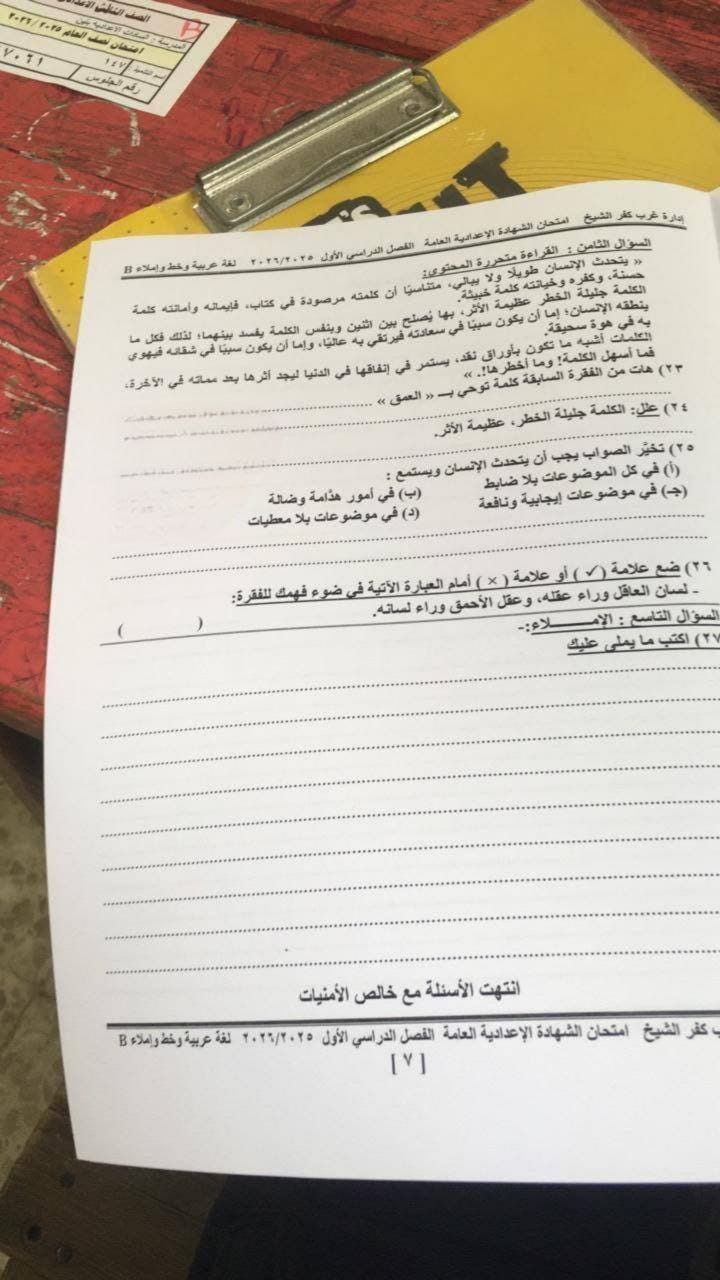 الصف الثالث الإعدادي
B
المدرسة : السادات الاعدادية بنين
امتحان نصف العام ٢٠٢٥/٢٠٢٦
اسم التلميذ : ١٤٧
رقم الجلوس ٧٠٦١
إدارة غرب كفر الشيخ امتحان الشهادة الإعدادية العامة الفصل الدراسي الأول ٢٠٢٦/٢٠٢٥ لغة عربية وخط وإملاء B
السؤال الثامن : القراءة متحررة المحتوى:
« يتحدث الإنسان طويلًا ولا يبالي، متناسيًا أن كلمته مرصودة في كتاب، فإيمانه وأمانته كلمة
حسنة، وكفره وخيانته كلمة خبيثة.
الكلمة جليلة الخطر عظيمة الأثر، بها يُصلح بين اثنين وبنفس الكلمة يفسد بينهما؛ لذلك فكل ما
ينطقه الإنسان؛ إما أن يكون سببًا في سعادته فيرتقي به عاليًا، وإما أن يكون سببًا في شقائه فيهوي
به في هوة سحيقة.
الكلمات أشبه ما تكون بأوراق نقد، يستمر في إنفاقها في الدنيا ليجد أثرها بعد مماته في الآخرة،
فما أسهل الكلمة! وما أخطرها!. »
٢٣) هات من الفقرة السابقة كلمة توحي بـ « العمق »
٢٤) علل: الكلمة جليلة الخطر، عظيمة الأثر.
٢٥) تخيَّر الصواب يجب أن يتحدث الإنسان ويستمع :
(أ) في كل الموضوعات بلا ضابط (ب) في أمور هدَّامة وضالة
(جـ) في موضوعات إيجابية ونافعة (د) في موضوعات بلا معطيات
٢٦) ضع علامة (✓) أو علامة (×) أمام العبارة الآتية في ضوء فهمك للفقرة:
- لسان العاقل وراء عقله، وعقل الأحمق وراء لسانه. ( )
السؤال التاسع : الإمـــلاء:-
٢٧) اكتب ما يملى عليك
انتهت الأسئلة مع خالص الأمنيات
ب كفر الشيخ امتحان الشهادة الإعدادية العامة الفصل الدراسي الأول ٢٠٢٦/٢٠٢٥ لغة عربية وخط وإملاء B
[ ٧ ]